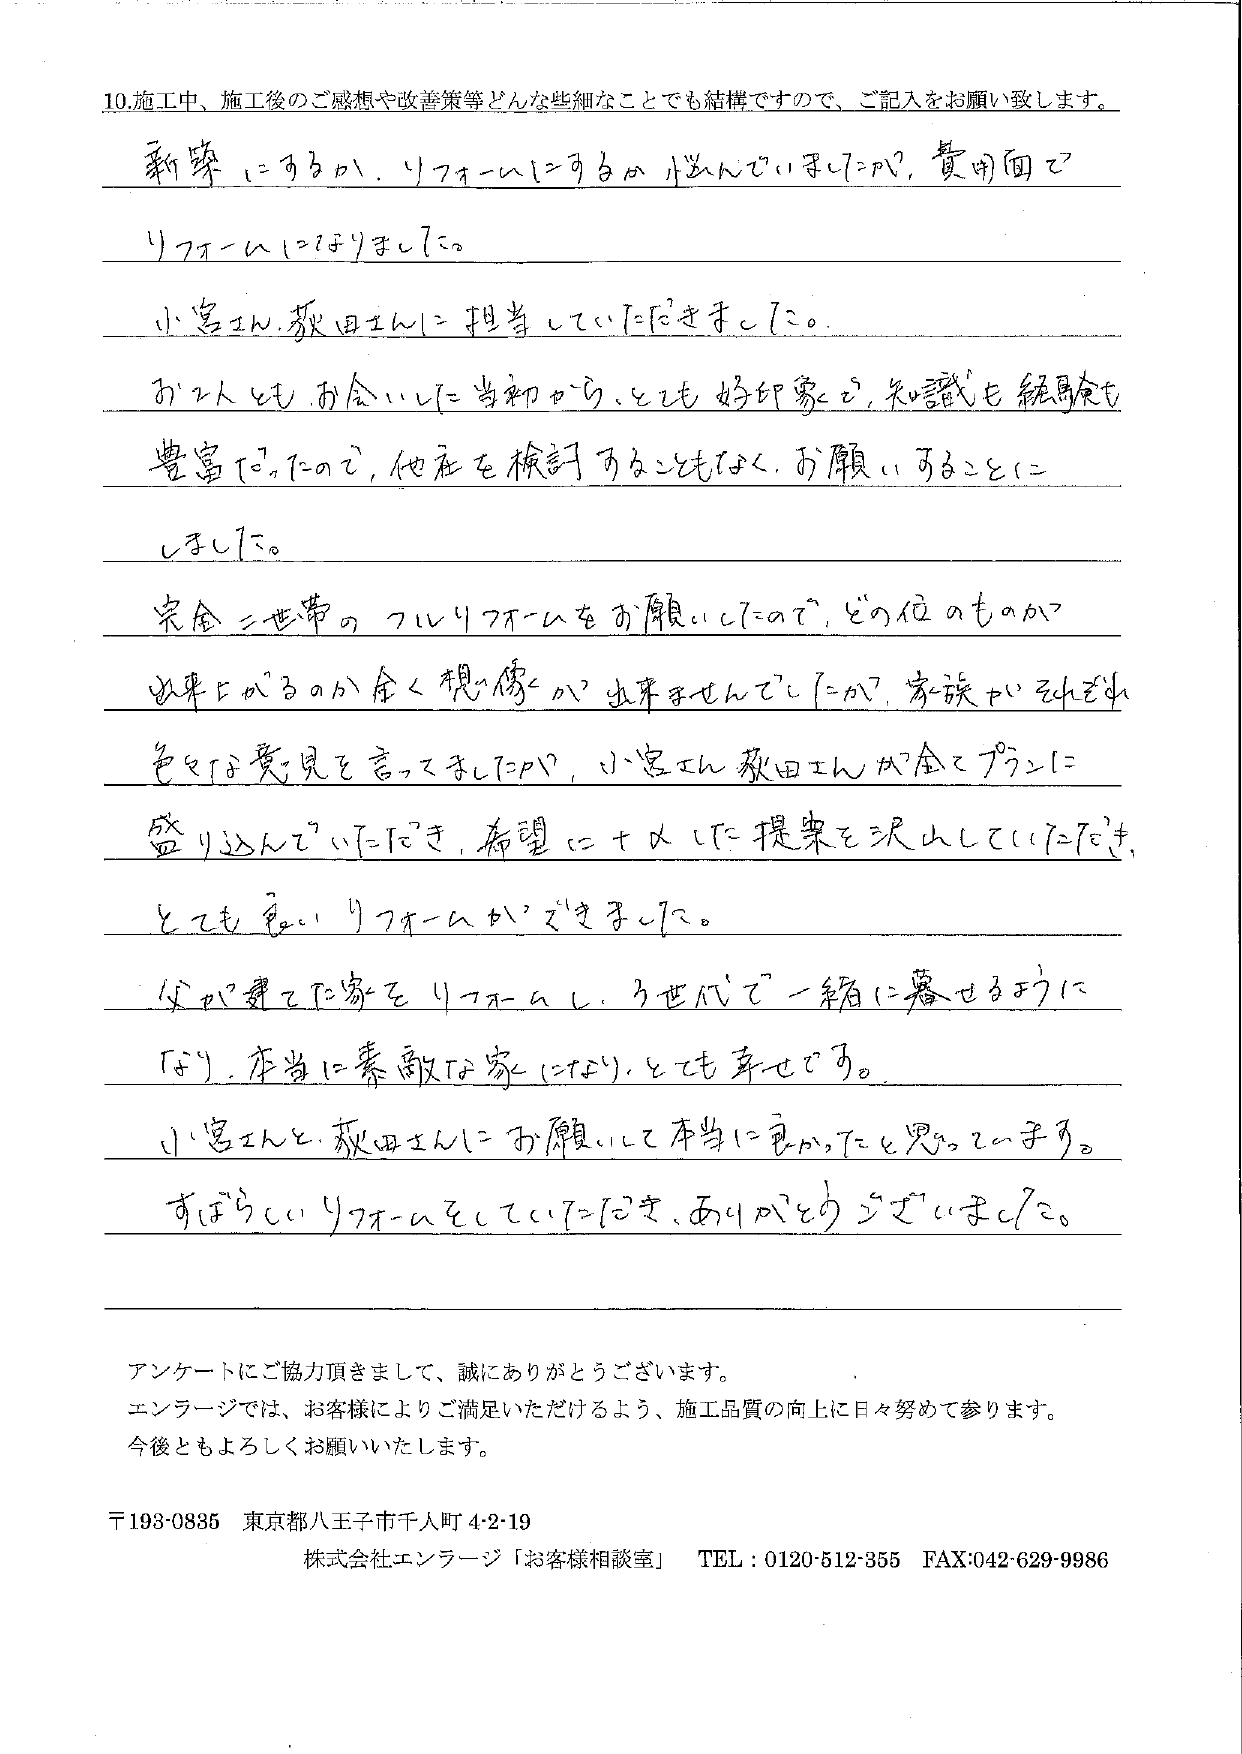 10.施工中、施工後のご感想や改善策等どんな些細なことでも結構ですので、ご記入をお願い致します。
新築にするか、リフォームにするか悩んでいましたが、費用面で
リフォームになりました。
小宮さん、荻田さんに担当していただきました。
お2人とも、お会いした当初から、とても好印象で、知識も経験も
豊富だったので、他社を検討することもなく、お願いすることに
しました。
完全二世帯のフルリフォームをお願いしたので、どの位のものが
出来上がるのか全く想像が出来ませんでしたが、家族がそれぞれ
色々な意見を言ってましたが、小宮さん荻田さんが全てプランに
盛り込んでいただき、希望に十〆した提案を沢山していただき、
とても良いリフォームができました。
父が建てた家をリフォームし、3世代で一緒に暮せるように
なり、本当に素敵な家になり、とても幸せです。
小宮さんと、荻田さんにお願いして本当に良かったと思っています。
すばらしいリフォームをしていただき、ありがとうございました。
アンケートにご協力頂きまして、誠にありがとうございます。
エンラージでは、お客様によりご満足いただけるよう、施工品質の向上に日々努めて参ります。
今後ともよろしくお願いいたします。
〒193-0835 東京都八王子市千人町 4-2-19
株式会社エンラージ「お客様相談室」 TEL : 0120-512-355 FAX:042-629-9986